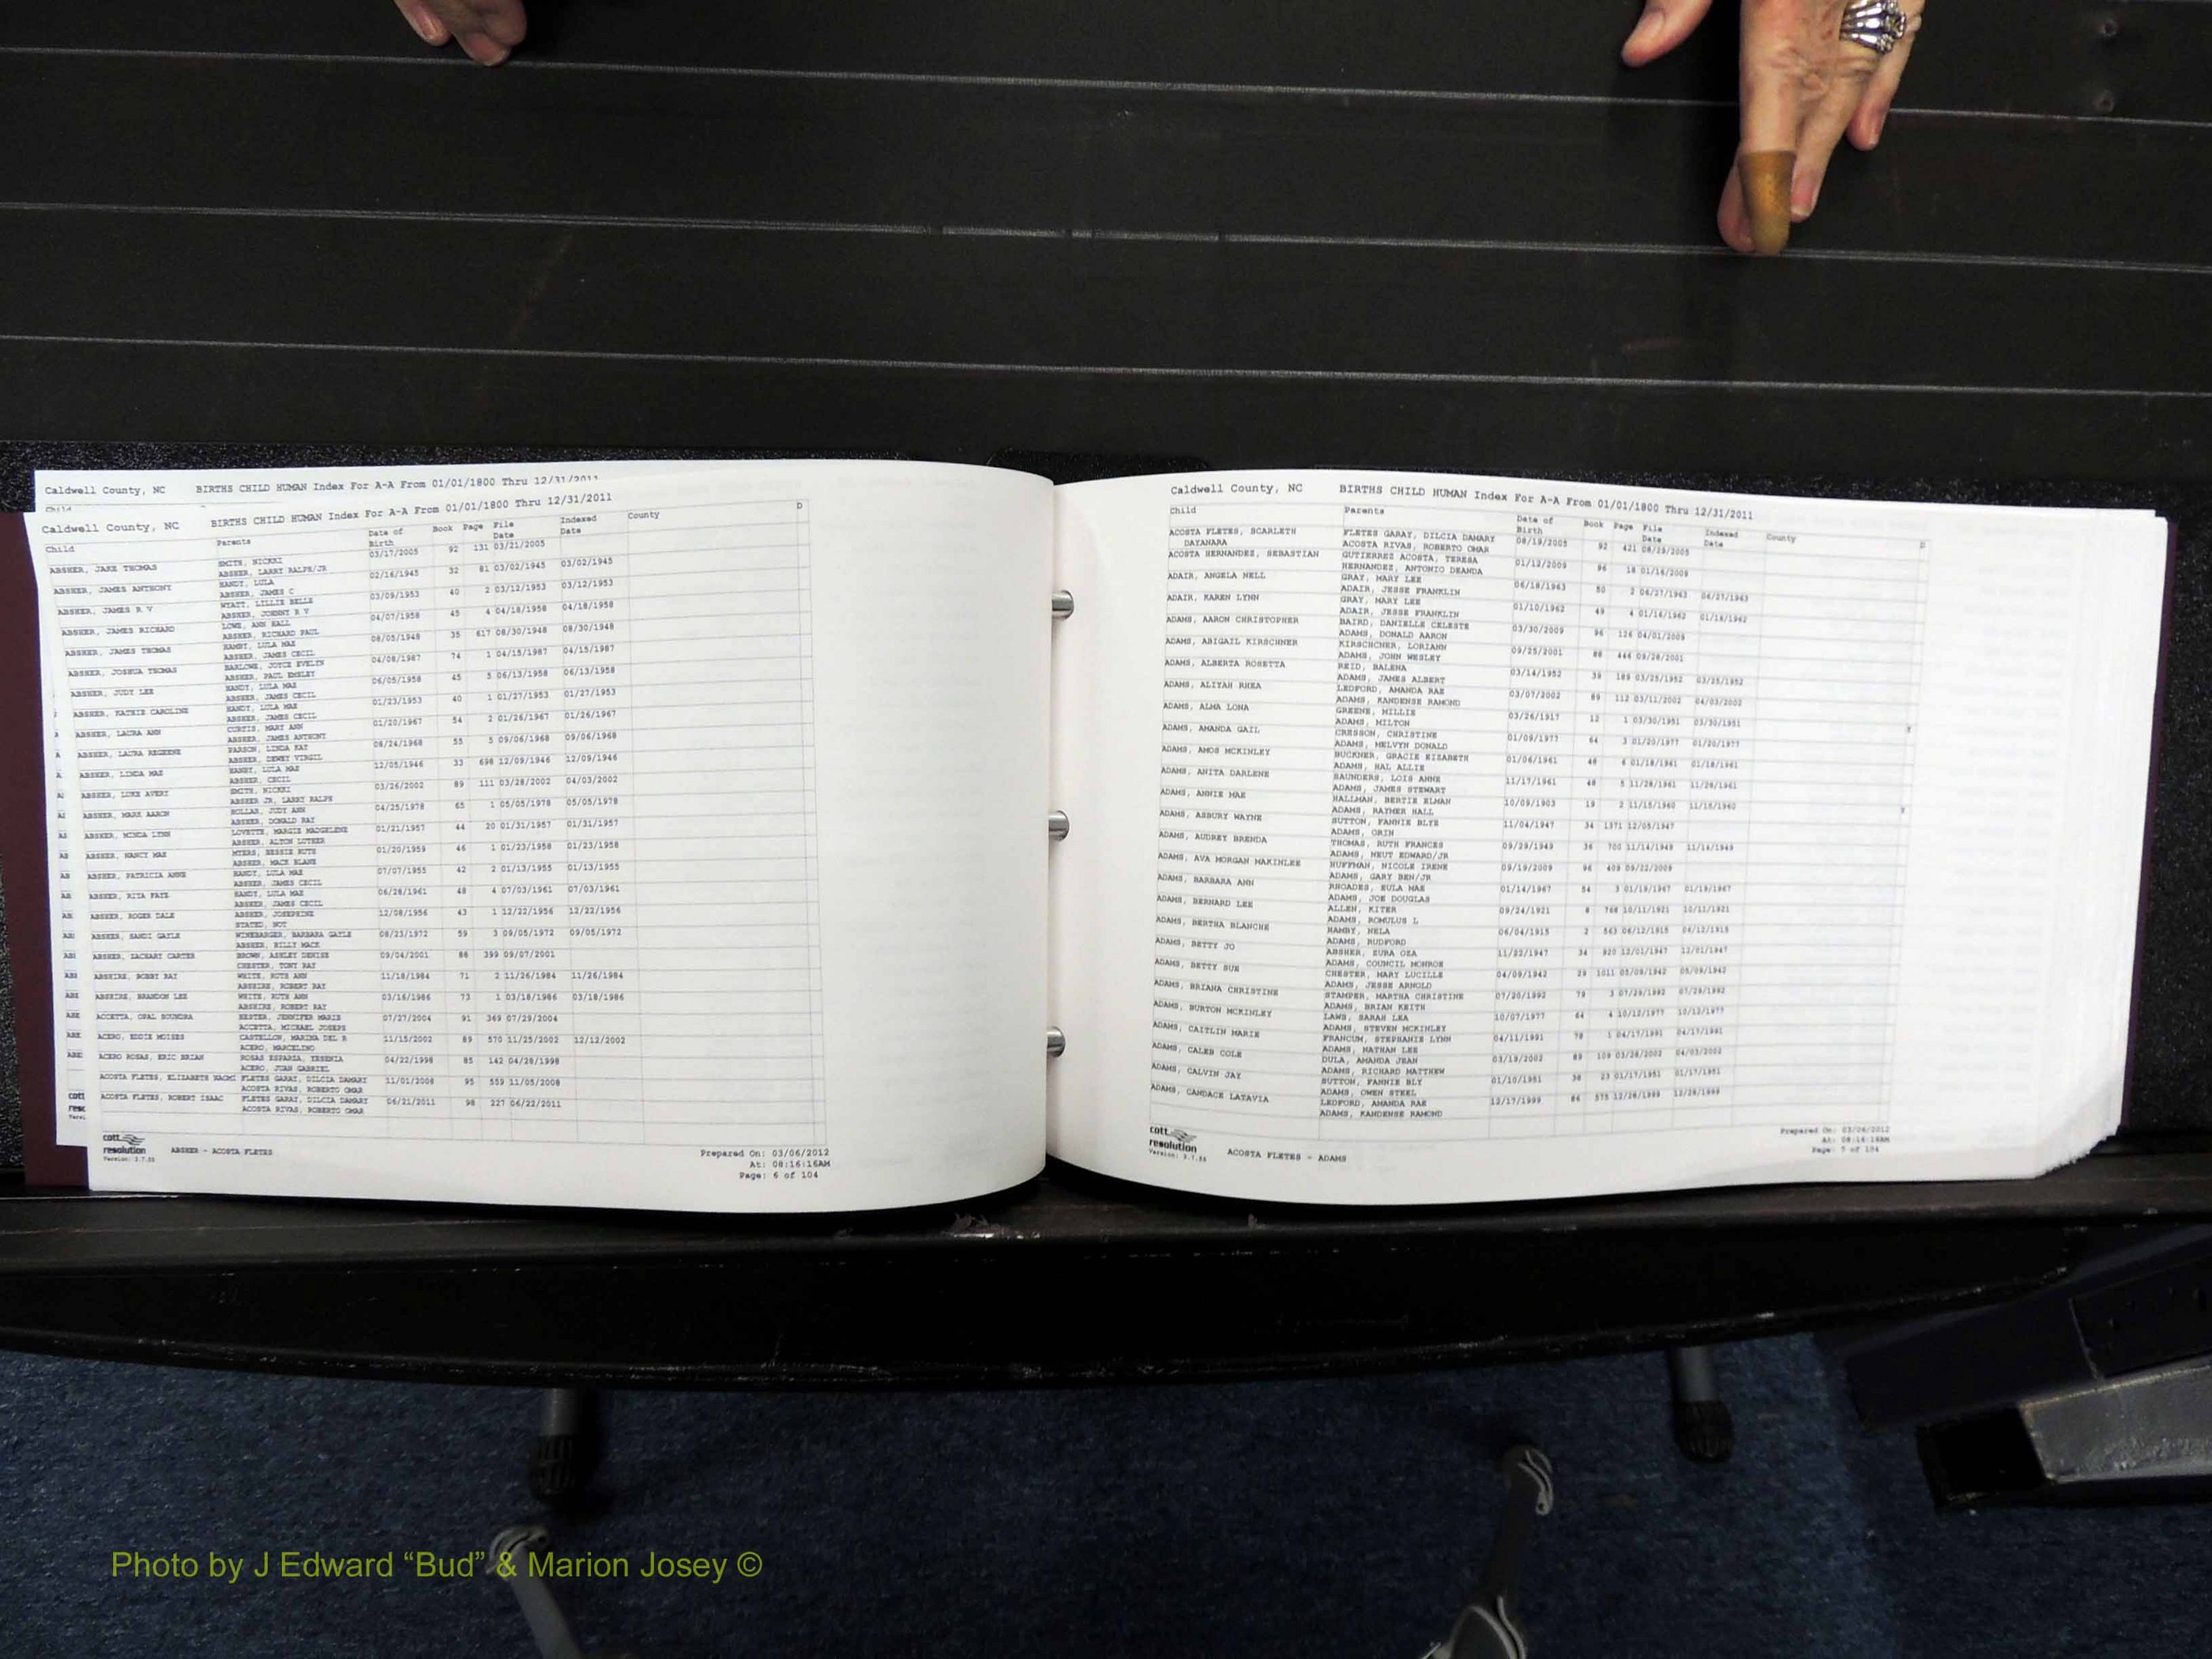 Caldwell County, NC BIRTHS CHILD HUMAN Index For A-A From 01/01/1800 Thru 12/31/2011
Caldwell County, NC BIRTHS CHILD HUMAN Index For A-A From 01/01/1800 Thru 12/31/2011 D
Child Parents Date of Birth Book Page File Date Indexed Date County
ABSHER, JAKE THOMAS SMITH, NICKKI 03/17/2005 92 131 03/21/2005
ABSHER, LARRY RALPH/JR
ABSHER, JAMES ANTHONY HANDY, LULA 02/16/1945 32 81 03/02/1945 03/02/1945
ABSHER, JAMES C
ABSHER, JAMES R V WYATT, LILLIE BELLE 03/09/1953 40 2 03/12/1953 03/12/1953
ABSHER, JOHNNY R V
ABSHER, JAMES RICHARD LOWE, ANN HALL 04/07/1958 45 4 04/18/1958 04/18/1958
ABSHER, RICHARD PAUL
ABSHER, JAMES THOMAS HAMBY, LULA MAE 08/05/1948 35 617 08/30/1948 08/30/1948
ABSHER, JAMES CECIL
ABSHER, JOSHUA THOMAS BARLOWE, JOYCE EVELYN 04/08/1987 74 1 04/15/1987 04/15/1987
ABSHER, PAUL EMSLEY
ABSHER, JUDY LEE HANDY, LULA MAE 06/05/1958 45 5 06/13/1958 06/13/1958
ABSHER, JAMES CECIL
ABSHER, KATHIE CAROLINE HANDY, LULA MAE 01/23/1953 40 1 01/27/1953 01/27/1953
ABSHER, JAMES CECIL
ABSHER, LAURA ANN CURTIS, MARY ANN 01/20/1967 54 2 01/26/1967 01/26/1967
ABSHER, JAMES ANTHONY
ABSHER, LAURA REGEENE PARSON, LINDA KAY 08/24/1968 55 5 09/06/1968 09/06/1968
ABSHER, DEWEY VIRGIL
ABSHER, LINDA MAE HAMBY, LULA MAE 12/05/1946 33 698 12/09/1946 12/09/1946
ABSHER, CECIL
ABSHER, LUKE AVERY SMITH, NICKKI 03/26/2002 89 111 03/28/2002 04/03/2002
ABSHER JR, LARRY RALPH
ABSHER, MARK AARON HOLLAR, JUDY ANN 04/25/1978 65 1 05/05/1978 05/05/1978
ABSHER, DONALD RAY
ABSHER, MINDA LYNN LOVETTE, MARGIE MADGELENE 01/21/1957 44 20 01/31/1957 01/31/1957
ABSHER, ALTON LUTHER
ABSHER, NANCY MAE MYERS, BESSIE RUTH 01/20/1959 46 1 01/23/1958 01/23/1958
ABSHER, MACK BLANE
ABSHER, PATRICIA ANNE HANDY, LULA MAE 07/07/1955 42 2 01/13/1955 01/13/1955
ABSHER, JAMES CECIL
ABSHER, RITA FAYE HANDY, LULA MAE 06/28/1961 48 4 07/03/1961 07/03/1961
ABSHER, JAMES CECIL
ABSHER, ROGER DALE ABSHER, JOSEPHINE 12/08/1956 43 1 12/22/1956 12/22/1956
STATED, NOT
ABSHER, SANDI GAYLE WINEBARGER, BARBARA GAYLE 08/23/1972 59 3 09/05/1972 09/05/1972
ABSHER, BILLY MACK
ABSHER, ZACHARY CARTER BROWN, ASHLEY DENISE 09/04/2001 88 399 09/07/2001
CHESTER, TONY RAY
ABSHIRE, BOBBY RAY WHITE, RUTH ANN 11/18/1984 71 2 11/26/1984 11/26/1984
ABSHIRE, ROBERT RAY
ABSHIRE, BRANDON LEE WHITE, RUTH ANN 03/16/1986 73 1 03/18/1986 03/18/1986
ABSHIRE, ROBERT RAY
ACCETTA, OPAL SOUNDRA HESTER, JENNIFER MARIE 07/27/2004 91 369 07/29/2004
ACCETTA, MICHAEL JOSEPH
ACERO, EDDIE MOISES CASTELLON, MARINA DEL R 11/15/2002 89 570 11/25/2002 12/12/2002
ACERO, MARCELINO
ACERO ROSAS, ERIC BRIAN ROSAS ESPARZA, YESENIA 04/22/1998 85 142 04/28/1998
ACERO, JUAN GABRIEL
ACOSTA FLETES, ELIZABETH NAOMI FLETES GARAY, DILCIA DAMARY 11/01/2008 95 559 11/05/2008
ACOSTA RIVAS, ROBERTO OMAR
ACOSTA FLETES, ROBERT ISAAC FLETES GARAY, DILCIA DAMARY 06/21/2011 98 227 06/22/2011
ACOSTA RIVAS, ROBERTO OMAR
cott resolution Version: 3.7.55
ABSHER - ACOSTA FLETES
Prepared On: 03/06/2012
At: 08:16:16AM
Page: 6 of 104
Caldwell County, NC BIRTHS CHILD HUMAN Index For A-A From 01/01/1800 Thru 12/31/2011
Child Parents Date of Birth Book Page File Date Indexed Date County D
ACOSTA FLETES, SCARLETH DAYANARA FLETES GARAY, DILCIA DAMARY 08/19/2005 92 421 08/29/2005
ACOSTA RIVAS, ROBERTO OMAR
ACOSTA HERNANDEZ, SEBASTIAN GUTIERREZ ACOSTA, TERESA 01/12/2009 96 18 01/16/2009
HERNANDEZ, ANTONIO DEANDA
ADAIR, ANGELA NELL GRAY, MARY LEE 06/18/1963 50 2 06/27/1963 06/27/1963
ADAIR, JESSE FRANKLIN
ADAIR, KAREN LYNN GRAY, MARY LEE 01/10/1962 49 4 01/16/1962 01/16/1962
ADAIR, JESSE FRANKLIN
ADAMS, AARON CHRISTOPHER BAIRD, DANIELLE CELESTE 03/30/2009 96 126 04/01/2009
ADAMS, DONALD AARON
ADAMS, ABIGAIL KIRSCHNER KIRSCHCNER, LORIANN 09/25/2001 88 446 09/28/2001
ADAMS, JOHN WESLEY
ADAMS, ALBERTA ROSETTA REID, BALENA 03/14/1952 39 189 03/25/1952 03/25/1952
ADAMS, JAMES ALBERT
ADAMS, ALIYAH RHEA LEDFORD, AMANDA RAE 03/07/2002 89 112 03/11/2002 04/03/2002
ADAMS, KANDENSE RAMOND
ADAMS, ALMA LONA GREENE, MILLIE 03/26/1917 12 1 03/30/1951 03/30/1951
ADAMS, MILTON
ADAMS, AMANDA GAIL CRESSON, CHRISTINE 01/09/1977 64 3 01/20/1977 01/20/1977
ADAMS, MELVYN DONALD
ADAMS, AMOS MCKINLEY BUCKNER, GRACIE EIZABETH 01/06/1961 48 6 01/18/1961 01/18/1961
ADAMS, HAL ALLIE
ADAMS, ANITA DARLENE SAUNDERS, LOIS ANNE 11/17/1961 48 5 11/28/1961 11/28/1961
ADAMS, JAMES STEWART
ADAMS, ANNIE MAE HALLMAN, BERTIE ELMAN 10/09/1903 19 2 11/15/1960 11/15/1960
ADAMS, RAYMER HALL
ADAMS, ASBURY WAYNE SUTTON, FANNIE BLYE 11/04/1947 34 1371 12/05/1947
ADAMS, ORIN
ADAMS, AUDREY BRENDA THOMAS, RUTH FRANCES 09/29/1949 36 700 11/14/1949 11/14/1949
ADAMS, NEUT EDWARD/JR
ADAMS, AVA MORGAN MAKINLEE HUFFMAN, NICOLE IRENE 09/19/2009 96 409 09/22/2009
ADAMS, GARY BEN/JR
ADAMS, BARBARA ANN RHOADES, EULA MAE 01/14/1967 54 3 01/19/1967 01/19/1967
ADAMS, JOE DOUGLAS
ADAMS, BERNARD LEE ALLEN, KITER 09/24/1921 8 768 10/11/1921 10/11/1921
ADAMS, ROMULUS L
ADAMS, BERTHA BLANCHE HAMBY, NELA 06/04/1915 2 563 06/12/1915 06/12/1915
ADAMS, RUDFORD
ADAMS, BETTY JO ABSHER, EURA OZA 11/22/1947 34 920 12/01/1947 12/01/1947
ADAMS, COUNCIL MONROE
ADAMS, BETTY SUE CHESTER, MARY LUCILLE 04/09/1942 29 1011 05/09/1942 05/09/1942
ADAMS, JESSE ARNOLD
ADAMS, BRIANA CHRISTINE STAMPER, MARTHA CHRISTINE 07/20/1992 79 3 07/29/1992 07/29/1992
ADAMS, BRIAN KEITH
ADAMS, BURTON MCKINLEY LAWS, SARAH LEA 10/07/1977 64 4 10/12/1977 10/12/1977
ADAMS, STEVEN MCKINLEY
ADAMS, CAITLIN MARIE FRANCUM, STEPHANIE LYNN 04/11/1991 78 1 04/17/1991 04/17/1991
ADAMS, NATHAN LEE
ADAMS, CALEB COLE DULA, AMANDA JEAN 03/19/2002 89 109 03/26/2002 04/03/2002
ADAMS, RICHARD MATTHEW
ADAMS, CALVIN JAY SUTTON, FANNIE BLY 01/10/1951 38 23 01/17/1951 01/17/1951
ADAMS, OWEN STEEL
ADAMS, CANDACE LATAVIA LEDFORD, AMANDA RAE 12/17/1999 86 575 12/28/1999 12/28/1999
ADAMS, KANDENSE RAMOND
cott resolution Version: 3.7.55
ACOSTA FLETES - ADAMS
Prepared On: 03/06/2012
At: 08:16:16AM
Page: 7 of 104
Photo by J Edward “Bud” & Marion Josey ©